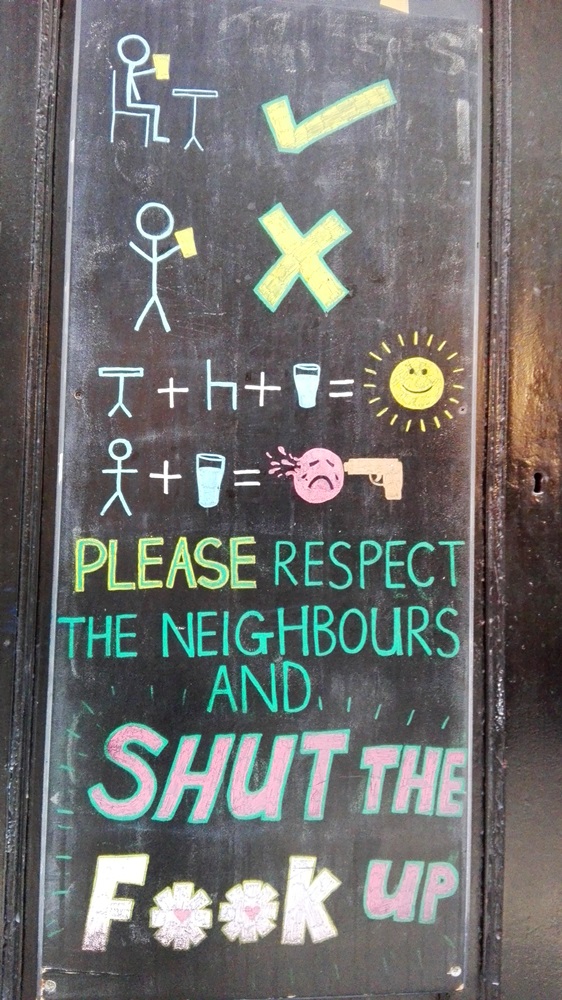 PLEASE RESPECT
THE NEIGHBOURS
AND
SHUT THE
FOOK UP